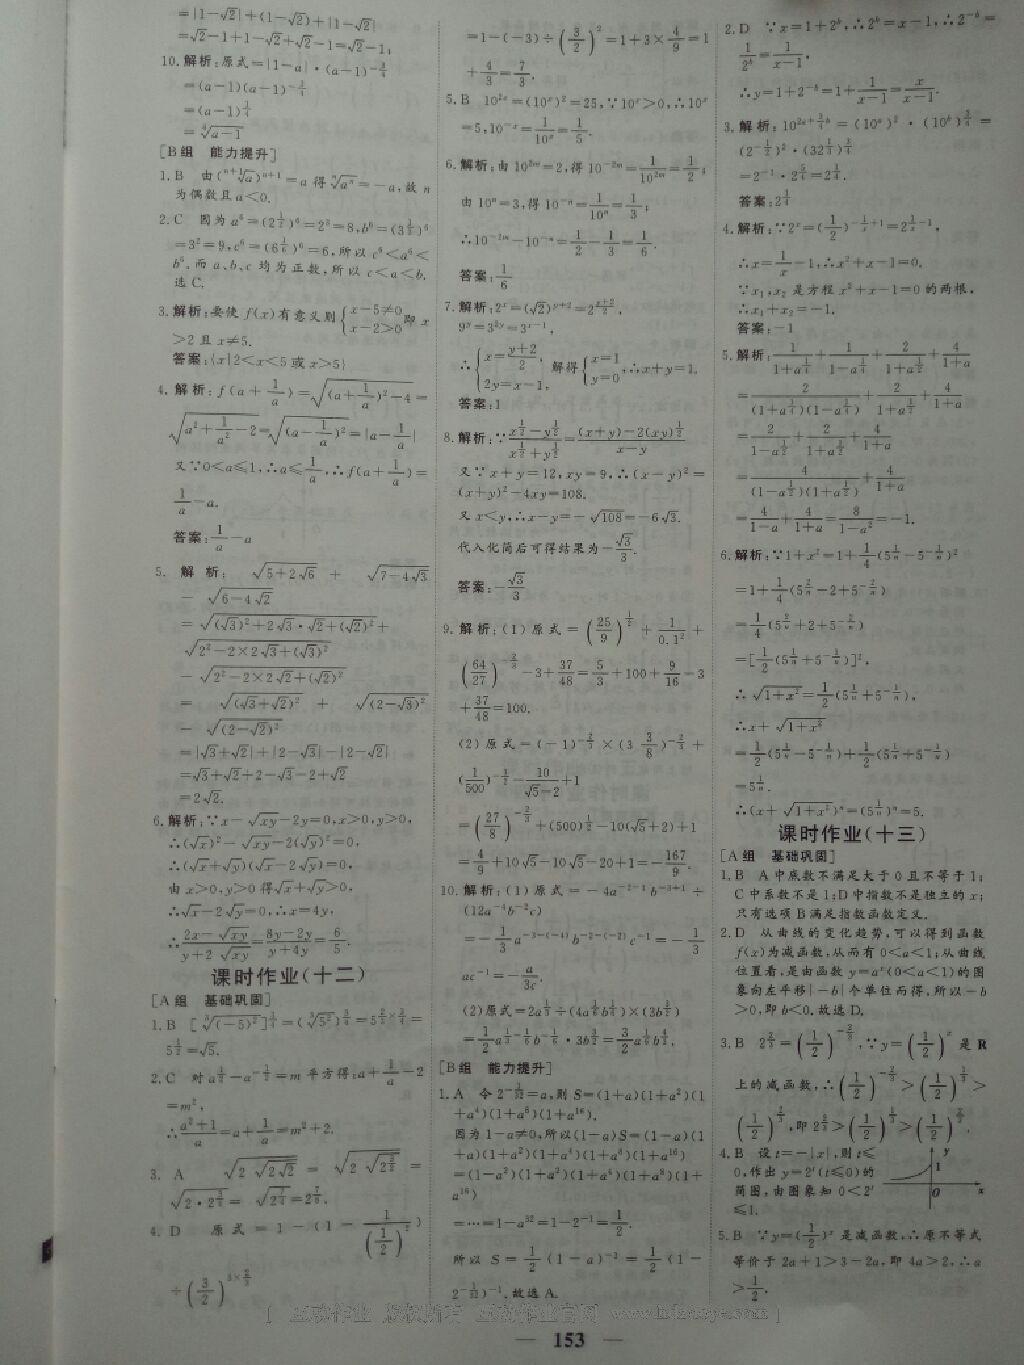 =|1-√2|+(1-√2)+|1-√2|
=√2-1+1-√2+√2-1=√2-1,
10.解析:原式=|1-a|·(a-1)^{-3/4}
=(a-1)(a-1)^{-3/4}
=(a-1)^{1/4}
=⁴√(a-1)
[B组 能力提升]
1.B 由(^{n+1}√a)^{n+1}=a得ⁿ√aⁿ=-a,故n
为偶数且a<0.
2.C 因为a⁶=(2^{1/2})⁶=2³=8,b⁶=(3^{1/3})⁶
=3²=9,c⁶=(6^{1/6})⁶=6,所以c⁶<a⁶<
b⁶.而a、b、c均为正数,所以c<a<b.
选C.
3.解析:要使f(x)有意义则{x-5≠0 x-2>0即x
>2且x≠5.
答案:{x|2<x<5或x>5}
4.解析:f(a+1/a)=√((a+1/a)²-4)=
√(a²+1/a²-2)=√((a-1/a)²)=|a-1/a|
又∵0<a≤1,∴a≤1/a,∴f(a+1/a)=
1/a-a.
答案:1/a-a
5. 解析: √(5+2√6) + √(7-4√3)
- √(6-4√2)
=√((√3)²+2√3·√2+(√2)²)+
√(2²-2×2√3+(√3)²)
-√(2²-2×2√2+(√2)²)
= √((√3+√2)²) + √((2-√3)²)
- √((2-√2)²)
=|√3+√2|+|2-√3|-|2-√2|
=√3+√2+2-√3-2+√2
=2√2.
6.解析:∵x-√(xy)-2y=0,x>0,y>0,
∴(√x)²-√(xy)-2(√y)²=0,
∴(√x+√y)(√x-2√y)=0,
由x>0,y>0得√x+√y>0,
∴√x-2√y=0,∴x=4y,
∴(2x-√(xy))/(y+2√(xy))=(8y-2y)/(y+4y)=6/5.
课时作业(十二)
[A组 基础巩固]
1.B [³√((-5)²)]^{3/4}=(³√(5²))^{3/4}=5^{2/3×3/4}=
5^{1/2}=√5.
2.C 对a^{1/2}-a^{-1/2}=m平方得:a+1/a-2
=m²,
∴(a²+1)/a=a+1/a=m²+2.
3. A √(2√(2√2)) = √(2√(2^{3/2})) =
√(2·2^{3/4})= √(2^{7/4})=2^{7/8}.
4. D 原式=1-(1-1/(1/2)²)
÷(3/2)^{3×2/3}
=1-(-3)÷(3/2)²=1+3×4/9=1
+4/3=7/3.
5.B 10^{2x}=(10^x)²=25,∵10^x>0,∴10^x
=5,10^{-x}=1/10^x=1/5.
6.解析:由10^{2m}=2,得10^{-2m}=1/10^{2m}=1/2;
由10ⁿ=3,得10^{-n}=1/10ⁿ=1/3;
∴10^{-2m}-10^{-n}=1/2-1/3=1/6.
答案:1/6
7.解析:2^x=(√2)^{y+2}=2^{(y+2)/2},
9^y=3^{2y}=3^{x-1},
∴{x=(y+2)/2, 2y=x-1, 解得{x=1 y=0,∴x+y=1.
答案:1
8.解析:∵(x^{1/2}-y^{1/2})/(x^{1/2}+y^{1/2})=((x+y)-2(xy)^{1/2})/(x-y)
又∵x+y=12,xy=9,∴(x-y)²=
(x+y)²-4xy=108.
又x<y,∴x-y=-√108=-6√3.
代入化简后可得结果为-√3/3.
答案:-√3/3
9.解析:(1)原式=(25/9)^{1/2}+1/0.1²+
(64/27)^{-2/3}-3+37/48=5/3+100+9/16-3
+37/48=100.
(2)原式=(-1)^{-2/3}×(3 3/8)^{-2/3}+
(1/500)^{-1/2}-10/(√5-2)+1
=(27/8)^{-2/3}+(500)^{1/2}-10(√5+2)+1
=4/9+10√5-10√5-20+1=-167/9.
10.解析:(1)原式=-4a^{-2-1}b^{-3+1}÷
(12a^{-4}b^{-2}c)
=-1/3a^{-3-(-4)}b^{-2-(-2)}c^{-1}=-1/3
ac^{-1}=-a/3c.
(2)原式=2a^{1/3}÷(4a^{1/6}b^{1/6})×(3b^{3/2})
=1/2a^{1/3-1/6}b^{-1/6}·3b^{3/2}=3/2a^{1/6}b^{4/3}.
[B组 能力提升]
1.A 令2^{-1/32}=a,则S=(1+a)(1+a²)(1
+a⁴)(1+a⁸)(1+a¹⁶).
因为1-a≠0,所以(1-a)S=(1-a)(1
+a)(1+a²)(1+a⁴)(1+a⁸)(1+a¹⁶)
=(1-a²)(1+a²)(1+a⁴)(1+a⁸)(1+
a¹⁶)
=……=1-a³²=1-2^{-1}=1/2.
所以S=1/2(1-a)^{-1}=1/2(1-
2^{-1/32})^{-1}.故选A.
2.D ∵x=1+2^b,∴2^b=x-1,∴2^{-b}=
1/2^b=1/(x-1),
∴y=1+2^{-b}=1+1/(x-1)=x/(x-1).
3.解析:10^{2a+3/4b}=(10^a)²·(10^b)^{3/4}=
(2^{-1/2})²·(32^{1/3})^{3/4}
=2^{-1}·2^{5/4}=2^{1/4}.
答案:2^{1/4}
4.解析:∵2^x=(1/2)^{-1/x+1}=2^{1/x-1},
∴x=1/x-1,∴x²+x-1=0.
∵x₁,x₂是方程x²+x-1=0的两根,
∴x₁+x₂=-1.
答案:-1
5.解析:1/(1+a^{1/4})+1/(1-a^{1/4})+2/(1+a^{1/2})+4/(1+a)
=2/((1+a^{1/4})(1-a^{1/4}))+2/(1+a^{1/2})+4/(1+a)
=2/(1-a^{1/2})+2/(1+a^{1/2})+4/(1+a)
=4/((1-a^{1/2})(1+a^{1/2}))+4/(1+a)
=4/(1-a)+4/(1+a)=8/(1-a²)=-1.
6.解析:∵1+x²=1+1/4(5^{1/n}-5^{-1/n})²
=1+1/4(5^{2/n}-2+5^{-2/n})
=1/4(5^{2/n}+2+5^{-2/n})
=[1/2(5^{1/n}+5^{-1/n})]²,
∴√(1+x²)=1/2(5^{1/n}+5^{-1/n}),
∴x+√(1+x²)
=1/2(5^{1/n}-5^{-1/n})+1/2(5^{1/n}+5^{-1/n})
=5^{1/n}.
∴(x+√(1+x²))ⁿ=(5^{1/n})ⁿ=5.
课时作业(十三)
[A组 基础巩固]
1.B A中底数不满足大于0且不等于1;
C中系数不是1;D中指数不是独立的x;
只有选项B满足指数函数定义.
2.D 从曲线的变化趋势,可以得到函数
f(x)为减函数,从而有0<a<1;从曲线
位置看,是由函数y=a^x(0<a<1)的图
象向左平移|-b|个单位而得,所以-b
>0,即b<0.故选D.
3.B 2^{2/3}=(1/2)^{-2/3},∵y=(1/2)^x是R
上的减函数,∴(1/2)^{-2/3}>(1/2)^{1/3}>
(1/2)^{2/3},即2^{2/3}>(1/2)^{1/3}>(1/2)^{2/3}.
4.B 设t=-|x|,则t≤
0,作出y=2^t(t≤0)的
简图,由图象知0<2^t
≤1.
y
1
O
x
5.B ∵y=(1/2)^x是减函数,∴原不等式
等价于2a+1>3-2a,即4a>2,∴a
>1/2.
— 153 —